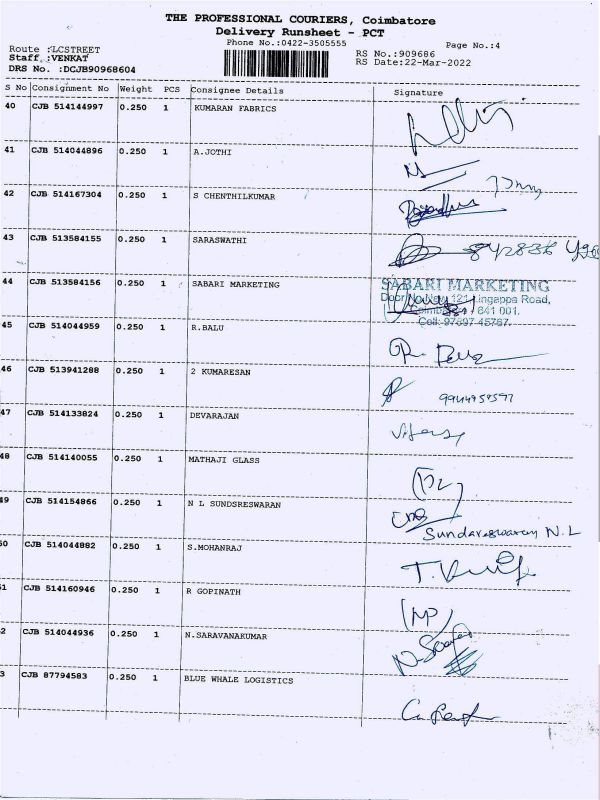 THE PROFESSIONAL COURIERS, Coimbatore
Delivery Runsheet - PCT
Phone No.:0422-3505555
Page No.:4
Route :LCSTREET
RS No.:909686
Staff :VENKAT
RS Date:22-Mar-2022
DRS No. :DCJB90968604
S No Consignment No Weight PCS Consignee Details Signature
40 CJB 514144997 0.250 1 KUMARAN FABRICS
41 CJB 514044896 0.250 1 A.JOTHI
42 CJB 514167304 0.250 1 S CHENTHILKUMAR
43 CJB 513584155 0.250 1 SARASWATHI
44 CJB 513584156 0.250 1 SABARI MARKETING
SABARI MARKETING
Door No.New 121 Lingappa Road,
641 001.
Cell: 97897 45767.
45 CJB 514044959 0.250 1 R.BALU
46 CJB 513941288 0.250 1 2 KUMARESAN
47 CJB 514133824 0.250 1 DEVARAJAN
48 CJB 514140055 0.250 1 MATHAJI GLASS
49 CJB 514154866 0.250 1 N L SUNDSRESWARAN
Sundareswaran N.L
50 CJB 514044882 0.250 1 S.MOHANRAJ
1 CJB 514160946 0.250 1 R GOPINATH
2 CJB 514044936 0.250 1 N.SARAVANAKUMAR
3 CJB 87794583 0.250 1 BLUE WHALE LOGISTICS